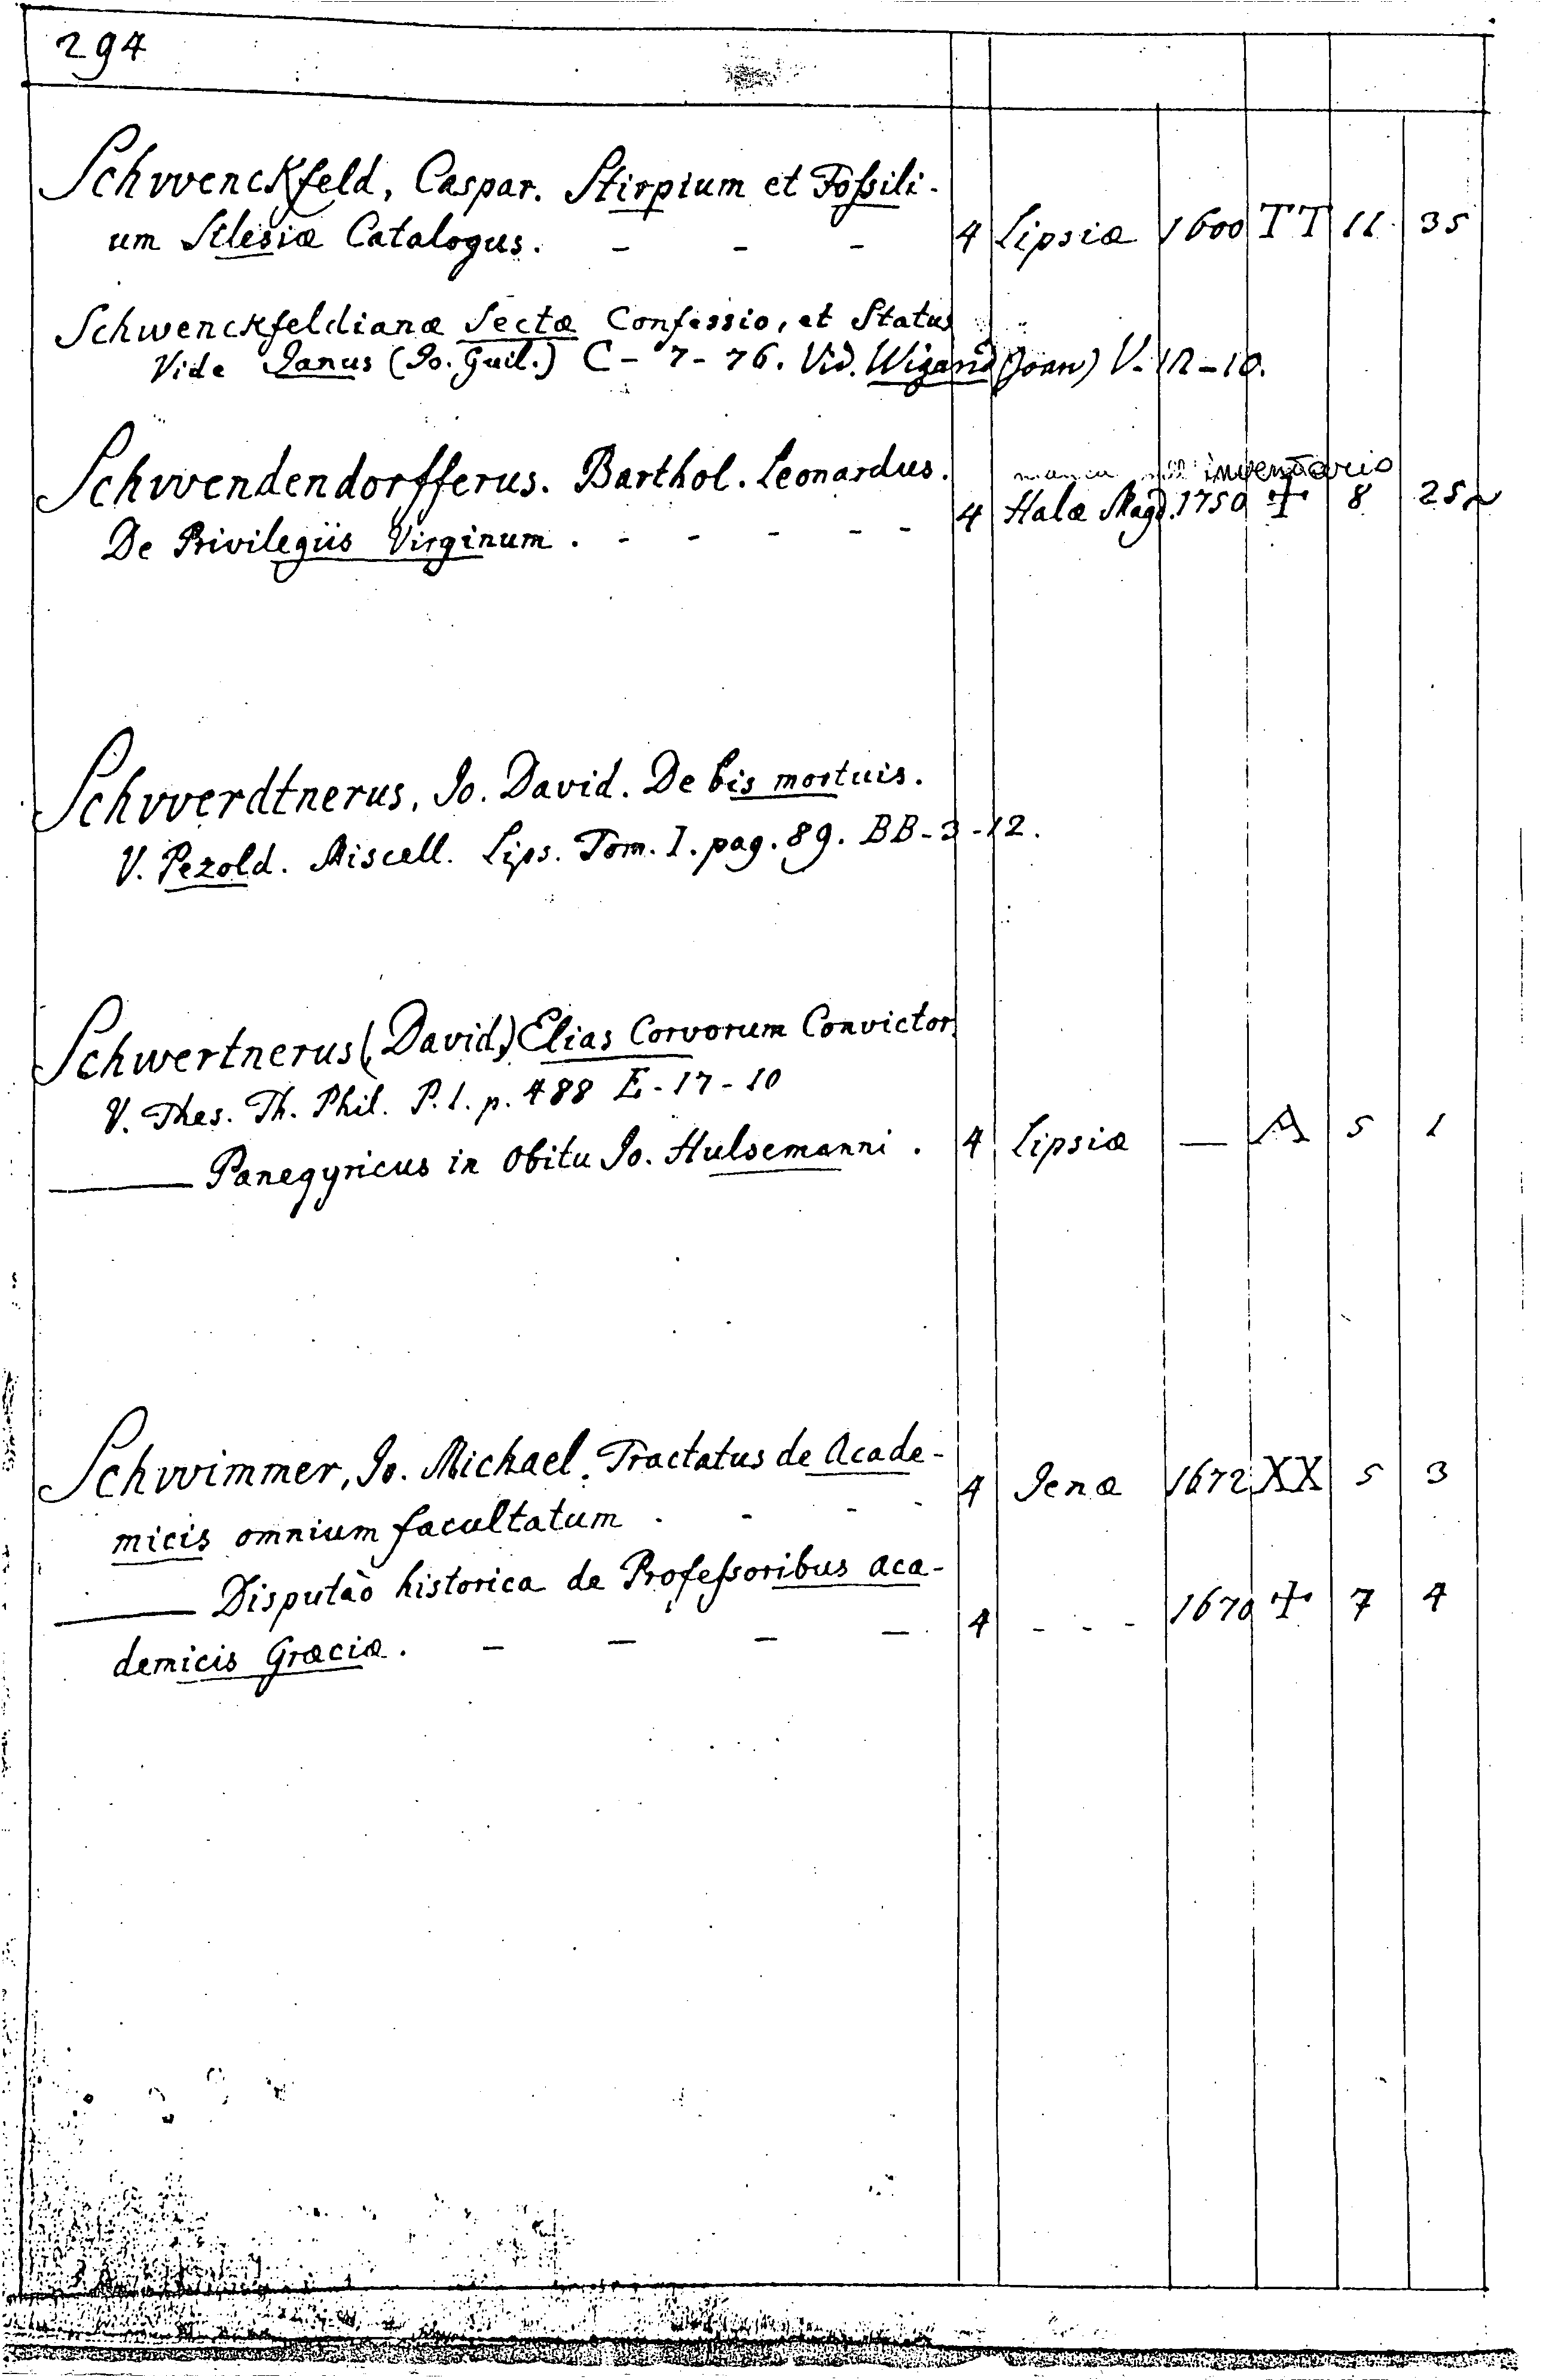 294
Schwenckfeld, Caspar. Stirpium et Foſsili-
um Silesiæ Catalogus. - - - 4 Lipsiæ 1600 TT 11. 35
Schwenckfeldianæ Sectæ Confessio, et Status
Vide Janus (Jo. Guil.) C - 7 - 76. Vid. Wigand (Joan) V. 12 - 10.
Schwendendorfferus. Barthol. Leonardus. inventario
De Privilegiis Virginum . - - - - - 4 Halæ Magd. 1750 + 8 25
Schwerdtnerus, Jo. David. De bis mortuis.
V. Pezold. Miscell. Lips. Tom. I. pag. 89. BB - 3 - 12.
Schwertnerus (David) Elias Corvorum Convictor
V. Thes. Th. Phil. P. 1. p. 488 E - 17 - 10
——— Panegyricus in Obitu Jo. Hulsemanni . 4 Lipsiæ — A 5 1
Schwimmer, Jo. Michael. Tractatus de Acade-
micis omnium facultatum . - - - 4 Jenæ 1672 XX 5 3
——— Disputaõ historica de Profeſsoribus aca-
demicis Græciæ. - - - - 4 - - - 1670 + 7 4